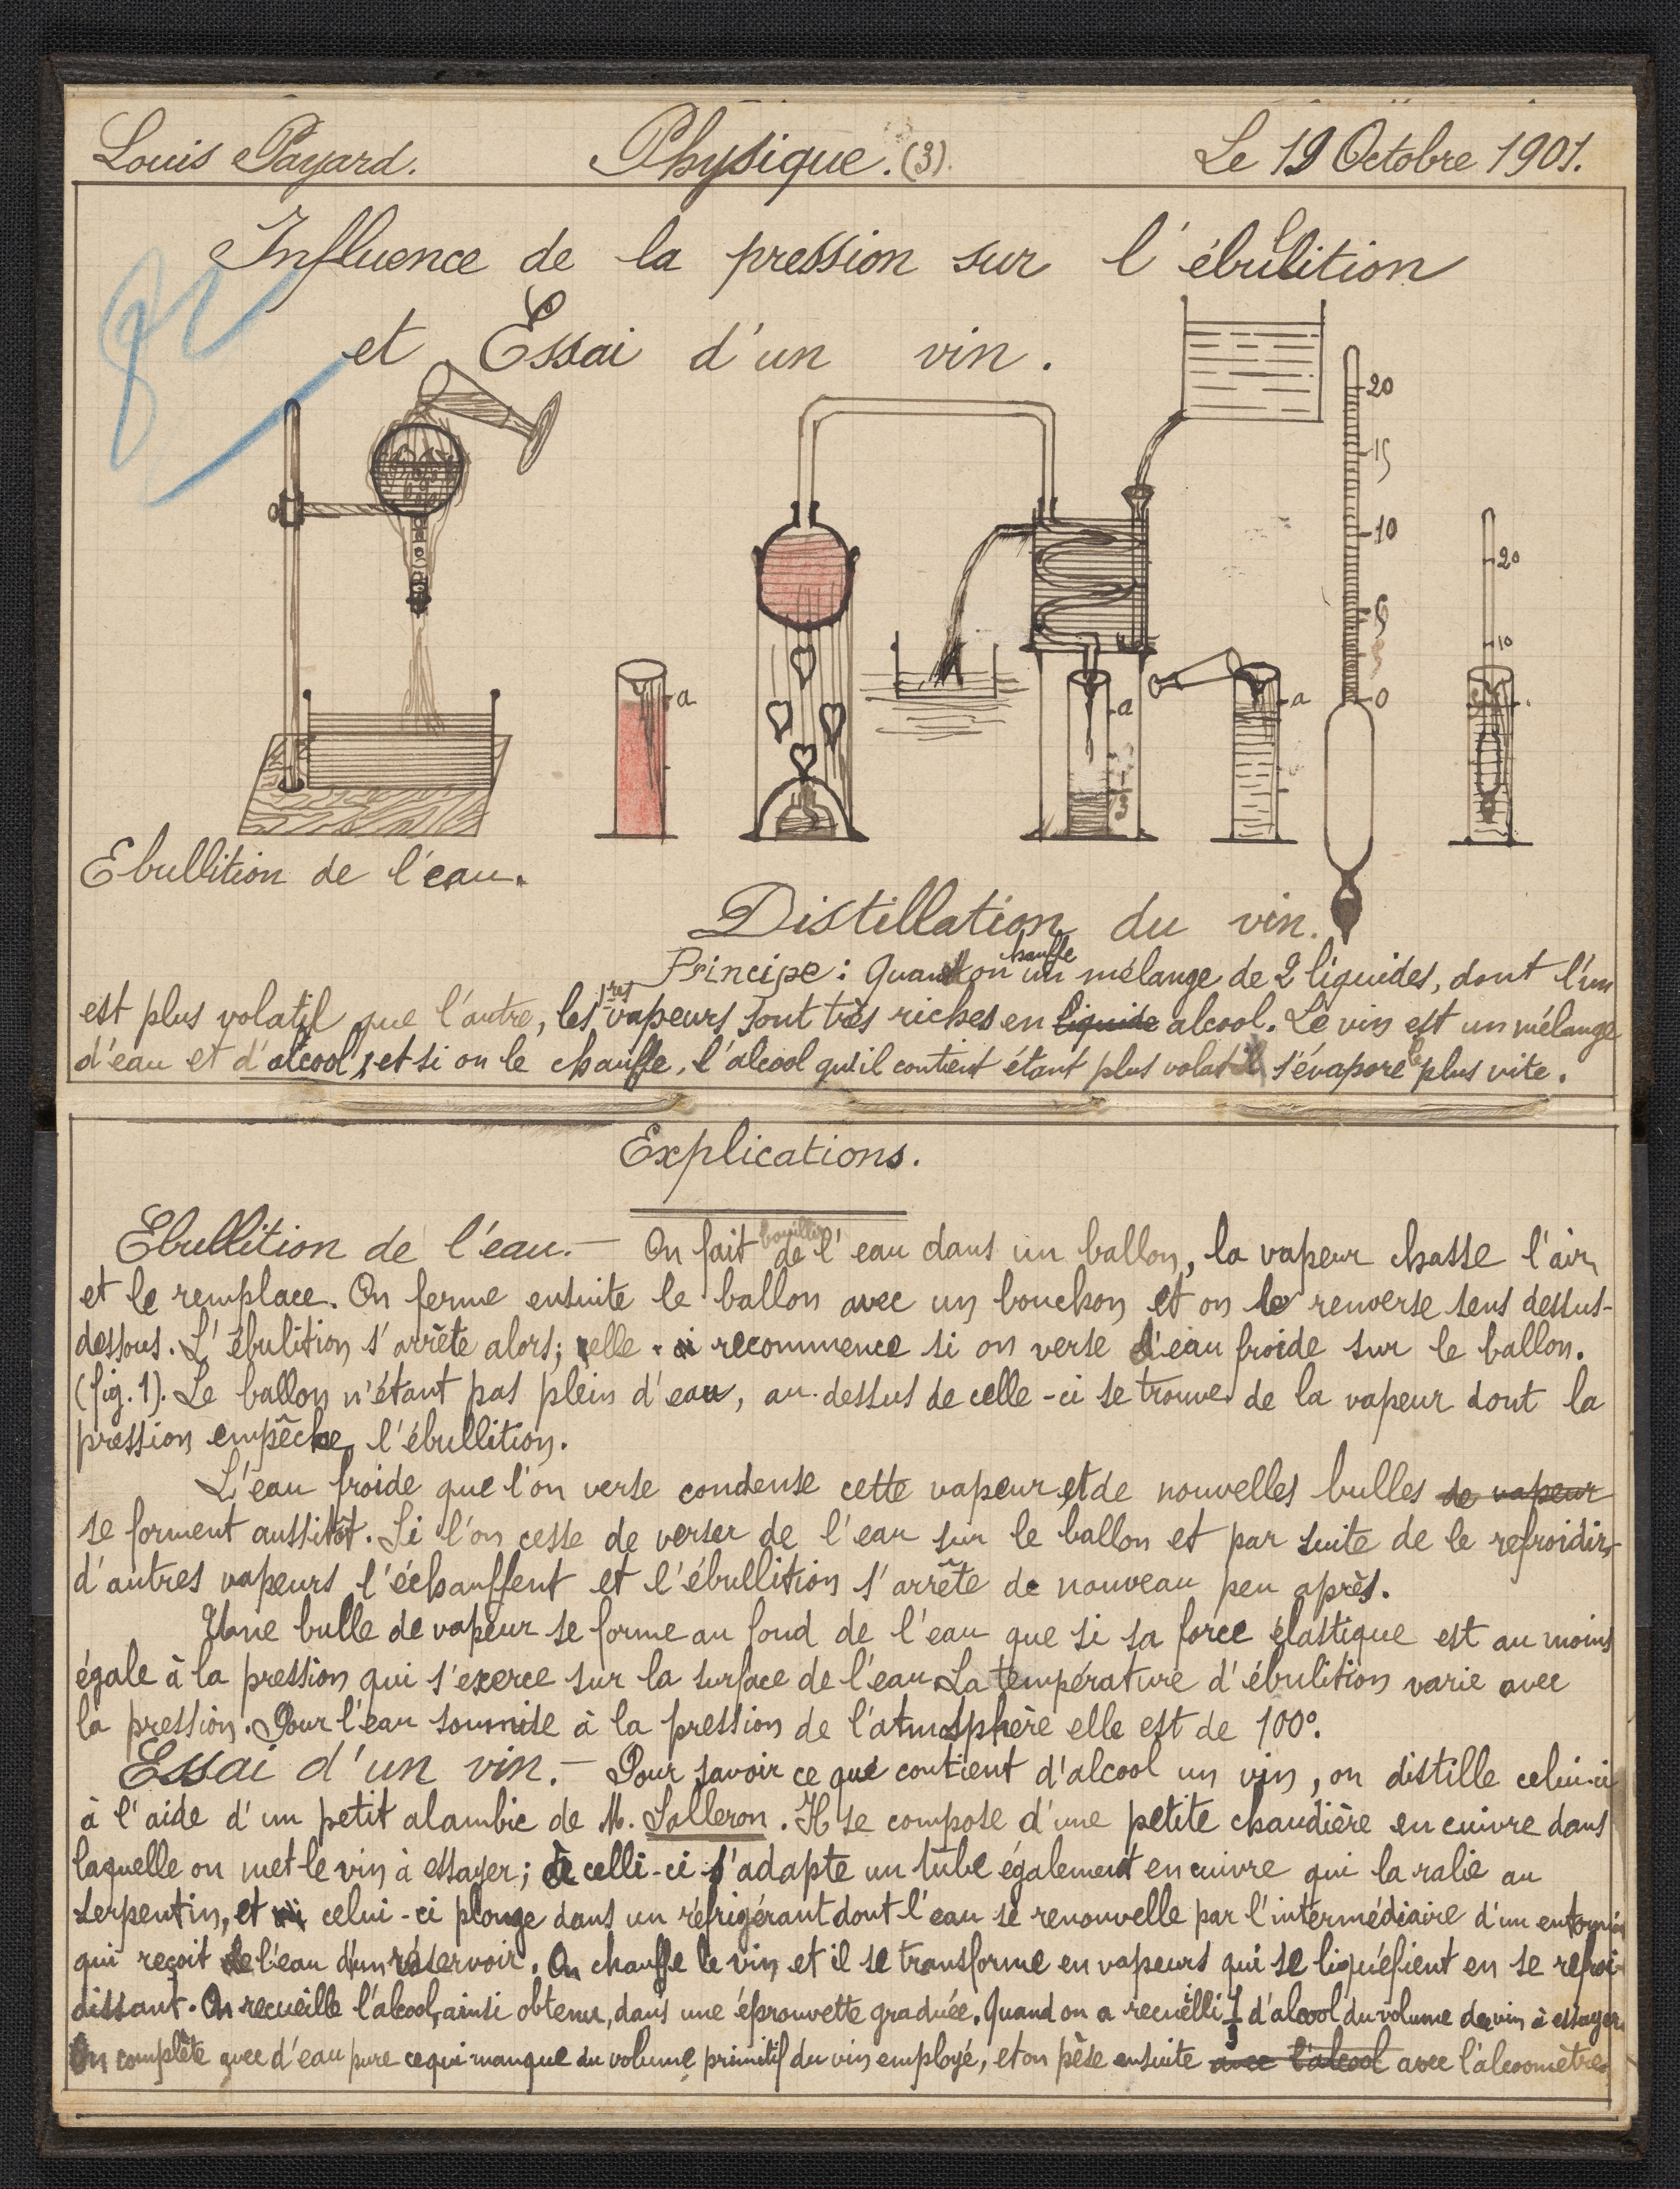 Louis Payard. Physique. (3). Le 19 Octobre 1901.
Influence de la pression sur l'ébullition
et Essai d'un vin.
20
15
10
5
0
20
10
a
a
a
1/3
Ebullition de l'eau.
Distillation du vin.
Principe : Quand on chauffe un mélange de 2 liquides, dont l'un
est plus volatil que l'autre, les 1res vapeurs sont très riches en liquide alcool. Le vin est un mélange
d'eau et d'alcool, et si on le chauffe, l'alcool qu'il contient étant plus volatil s'évapore le plus vite.
Explications.
Ebullition de l'eau. — On fait bouillir de l'eau dans un ballon, la vapeur chasse l'air
et le remplace. On ferme ensuite le ballon avec un bouchon et on le renverse sens dessus-
dessous. L'ébulition s'arrête alors; elle recommence si on verse d'eau froide sur le ballon.
(fig. 1). Le ballon n'étant pas plein d'eau, au-dessus de celle-ci se trouve de la vapeur dont la
pression empêche l'ébullition.
L'eau froide que l'on verse condense cette vapeur et de nouvelles bulles de vapeur
se forment aussitôt. Si l'on cesse de verser de l'eau sur le ballon et par suite de le refroidir,
d'autres vapeurs l'échauffent et l'ébullition s'arrête de nouveau peu après.
Une bulle de vapeur se forme au fond de l'eau que si sa force élastique est au moins
égale à la pression qui s'exerce sur la surface de l'eau. La température d'ébulition varie avec
la pression. Pour l'eau soumise à la pression de l'atmosphère elle est de 100°.
Essai d'un vin. — Pour savoir ce que contient d'alcool un vin, on distille celui-ci
à l'aide d'un petit alambic de M. Salleron. Il se compose d'une petite chaudière en cuivre dans
laquelle on met le vin à essayer; à celli-ci s'adapte un tube également en cuivre qui la ralie au
serpentin, et celui-ci plonge dans un réfrigérant dont l'eau se renouvelle par l'intermédiaire d'un entonnoir
qui reçoit de l'eau d'un réservoir. On chauffe le vin et il se transforme en vapeurs qui se liquéfient en se refroi-
dissant. On recueille l'alcool, ainsi obtenu, dans une éprouvette graduée. Quand on a recueilli 1/3 d'alcool du volume du vin à essayer
On complète avec d'eau pure ce qui manque du volume primitif du vin employé, et on pèse ensuite avec l'alcool avec l'alcoomètre